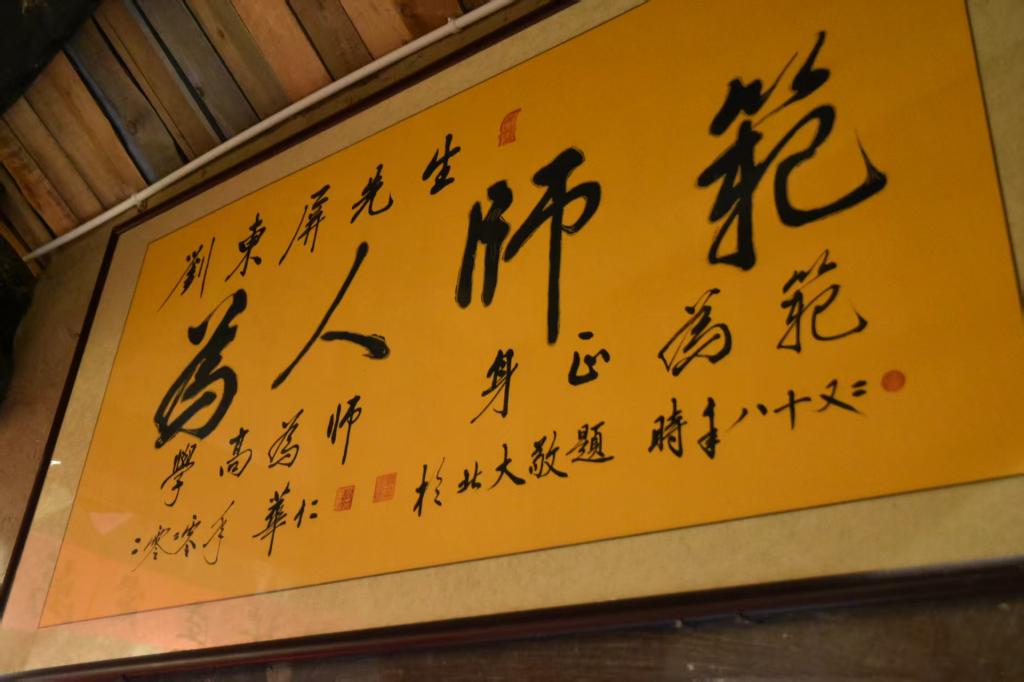 劉東屏先生
為人師範
學高為師 身正為範
二零零年 華仁 於北大敬題 時年八十又二